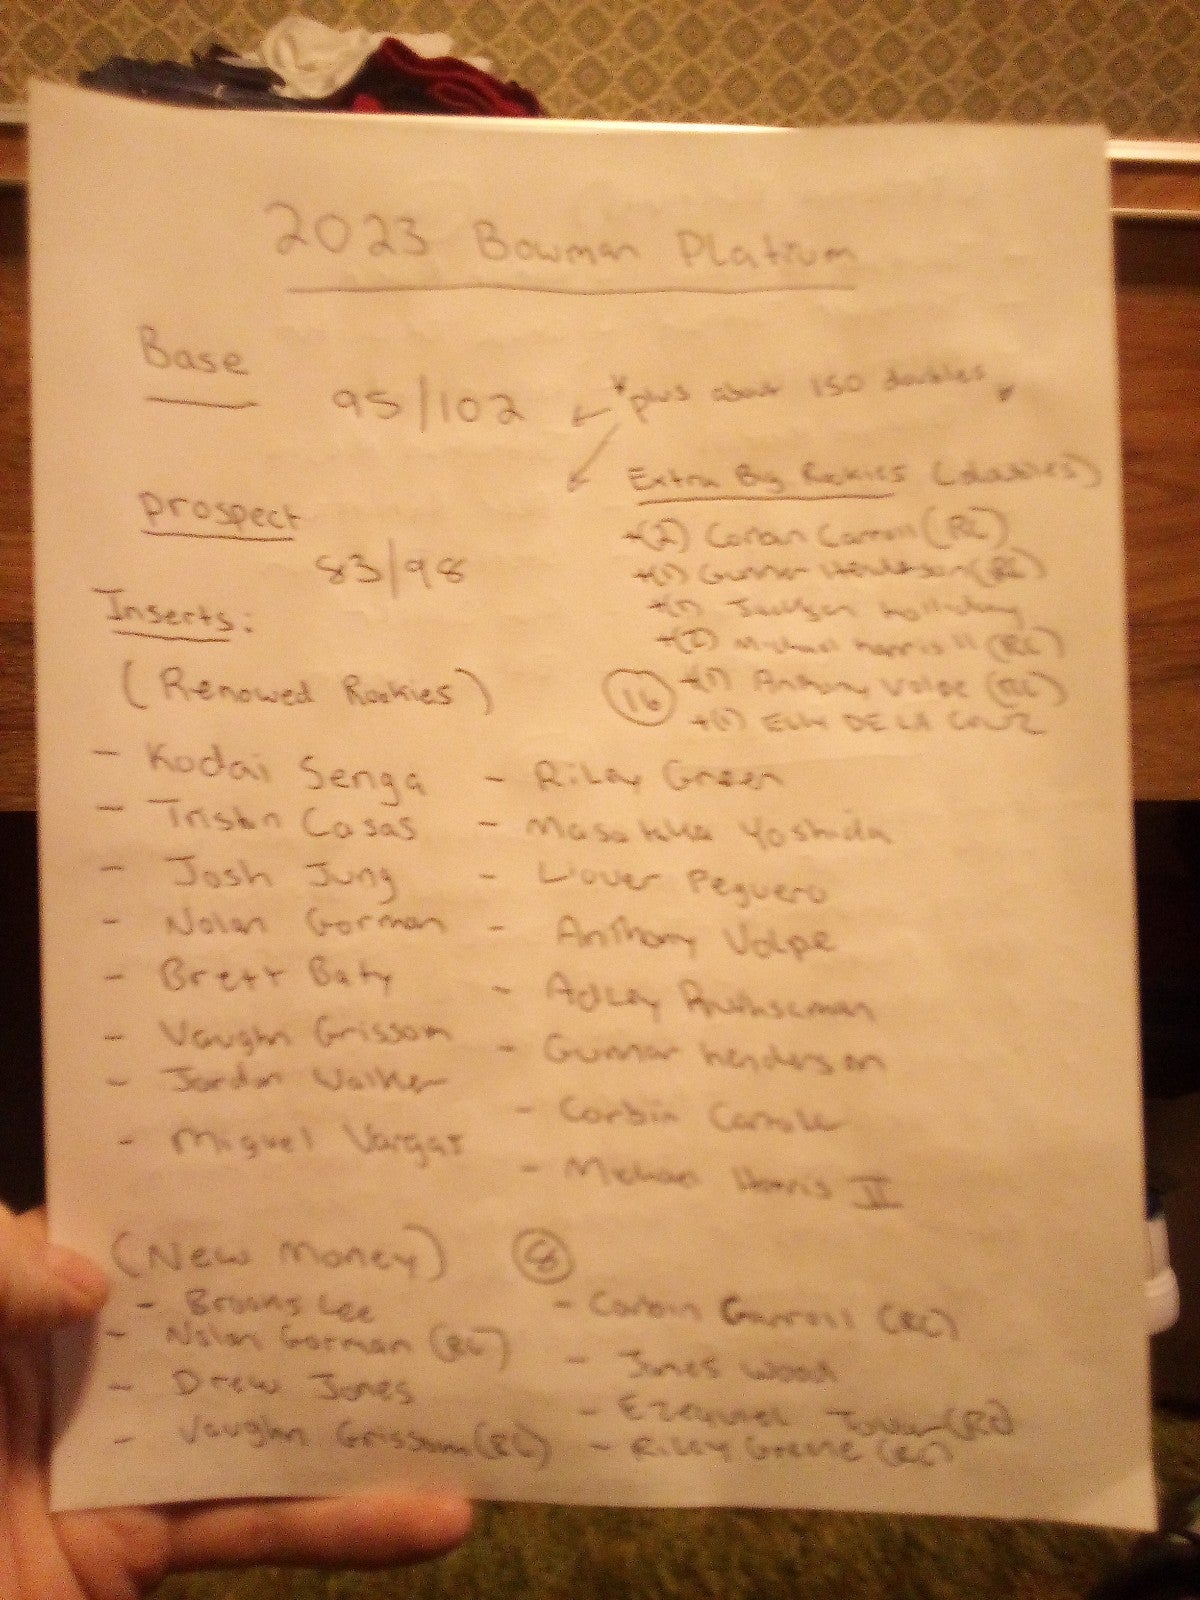 2023 Bowman Platium
Base
95/102
*plus about 150 doubles *
prospect
83/98
Extra Big Rookies (doubles)
+(2) Corbin Carroll (RC)
+(1) Gunnar Henderson (RC)
+(1) Jackson Holliday
+(2) Michael Harris II (RC)
+(1) Anthony Volpe (RC)
+(1) Elly DE LA CRUZ
Inserts:
(Renowed Rookies)
16
- Kodai Senga
- Triston Casas
- Josh Jung
- Nolan Gorman
- Brett Baty
- Vaughn Grissom
- Jordan Walker
- Miguel Vargas
- Riley Green
- Masataka Yoshida
- Liover Peguero
- Anthony Volpe
- Adley Ruthscman
- Gunnar henderson
- Corbin
- Harris II
(New Money)
8
- Brooks Lee
- Nolan Gorman (RC)
- Drew Jones
- Vaughn Grissom (RC)
- Corbin Carroll (RC)
- James Wood
- Ezequiel Tovar (RC)
- Riley Greene (RC)